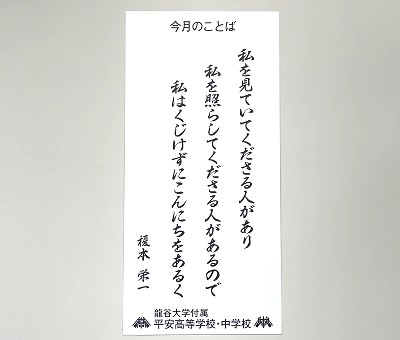 今月のことば
私を見ていてくださる人があり
私を照らしてくださる人があるので
私はくじけずにこんにちをあるく
榎本 栄一
龍谷大学付属
平安高等学校・中学校